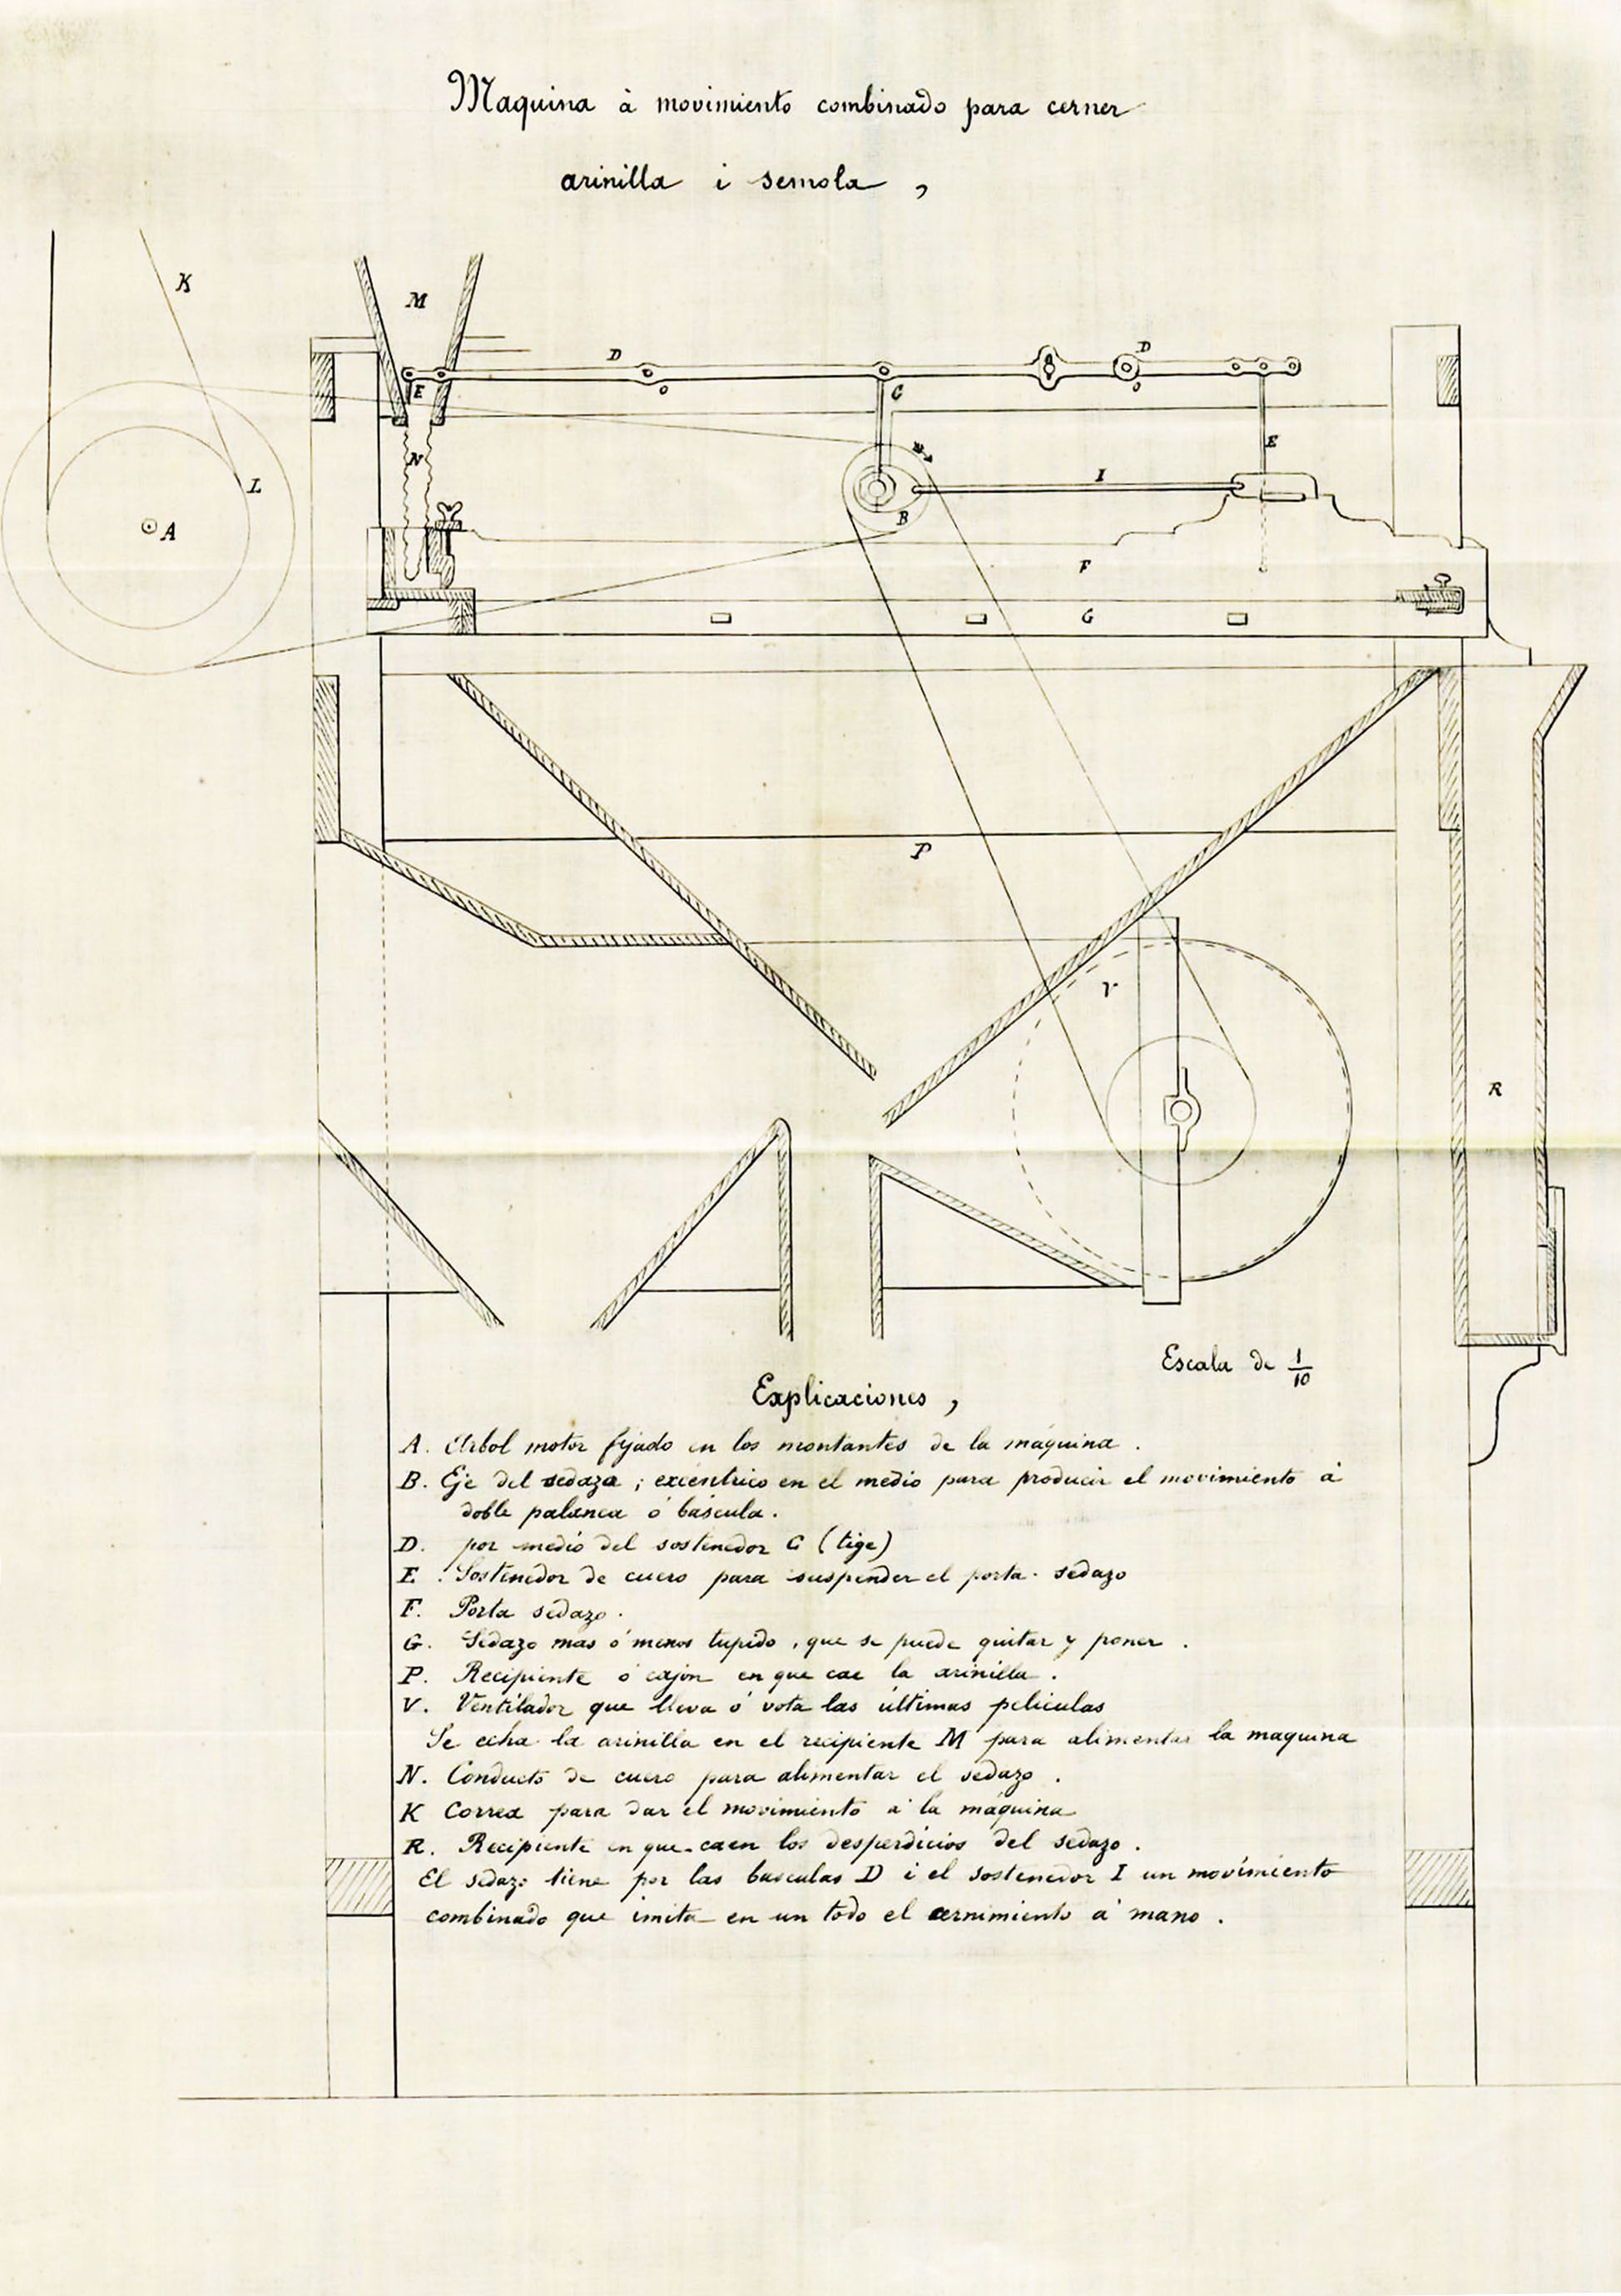 Maquina à movimiento combinado para cerner
arinilla i semola,
K
M
D
D
E
C
o
o
N
E
L
I
A
B
F
G
P
V
R
Escala de 1/10
Explicaciones,
A. Arbol motor fijado en los montantes de la máquina.
B. Eje del sedazo; excéntrico en el medio para producir el movimiento á
doble palanca ó báscula.
D. por medio del sostenedor C (tige)
E. Sostenedor de cuero para suspender el porta-sedazo
F. Porta sedazo.
G. Sedazo mas ó menos tupido, que se puede quitar y poner.
P. Recipiente ó cajon en que cae la arinilla.
V. Ventilador que lleva ó vota las últimas peliculas
Se echa la arinilla en el recipiente M para alimentar la maquina
N. Conducto de cuero para alimentar el sedazo.
K Correa para dar el movimiento a la máquina
R. Recipiente en que caen los desperdicios del sedazo.
El sedazo tiene por las basculas D i el sostenedor I un movímiento
combinado que imita en un todo el cernimiento á mano.